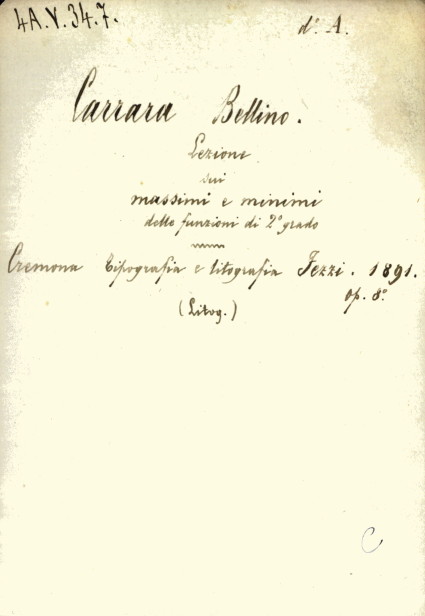 4A.Y.34.7.
d'. A.
Carrara Bellino.
Lezione
sui
massimi e minimi
delle funzioni di 2º grado
Cremona tipografia e litografia Fezzi. 1891.
op. 8º
(Litog.)
C